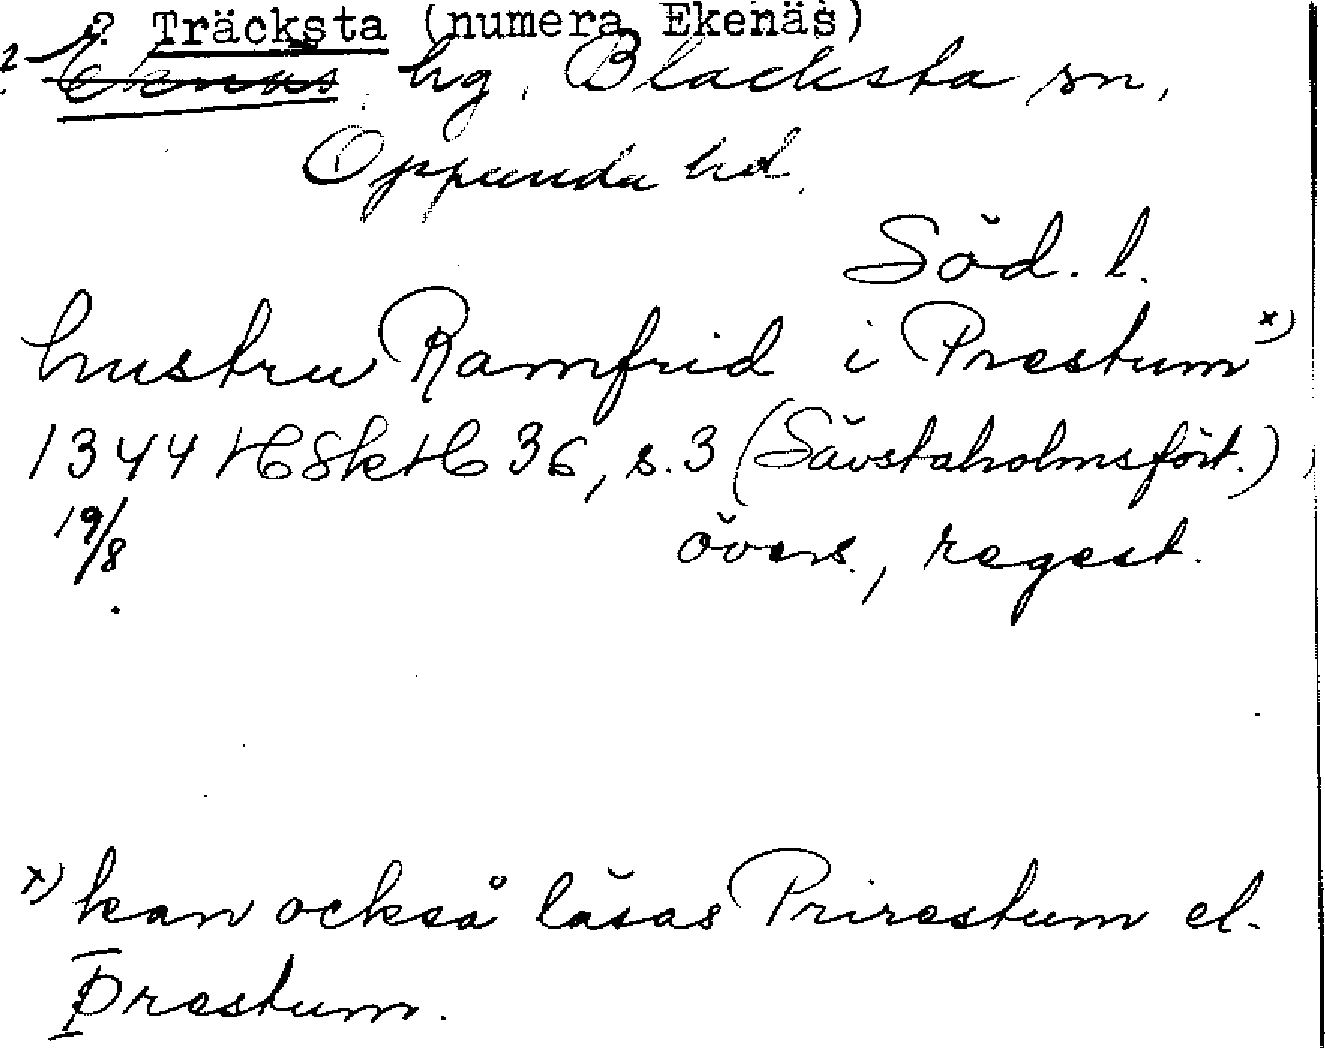 ? Träcksta (numera Ekenäs)
? Ekenäs, hg, Blacksta sn,
Oppunda hd.
Söd. l.
hustru Ramfrid i Prestum x)
1344 HSkH 36, s. 3 (Sävstaholmsfört.),
19/8 övers., regest.
x) kan också läsas Prirestum el.
Þrestum.